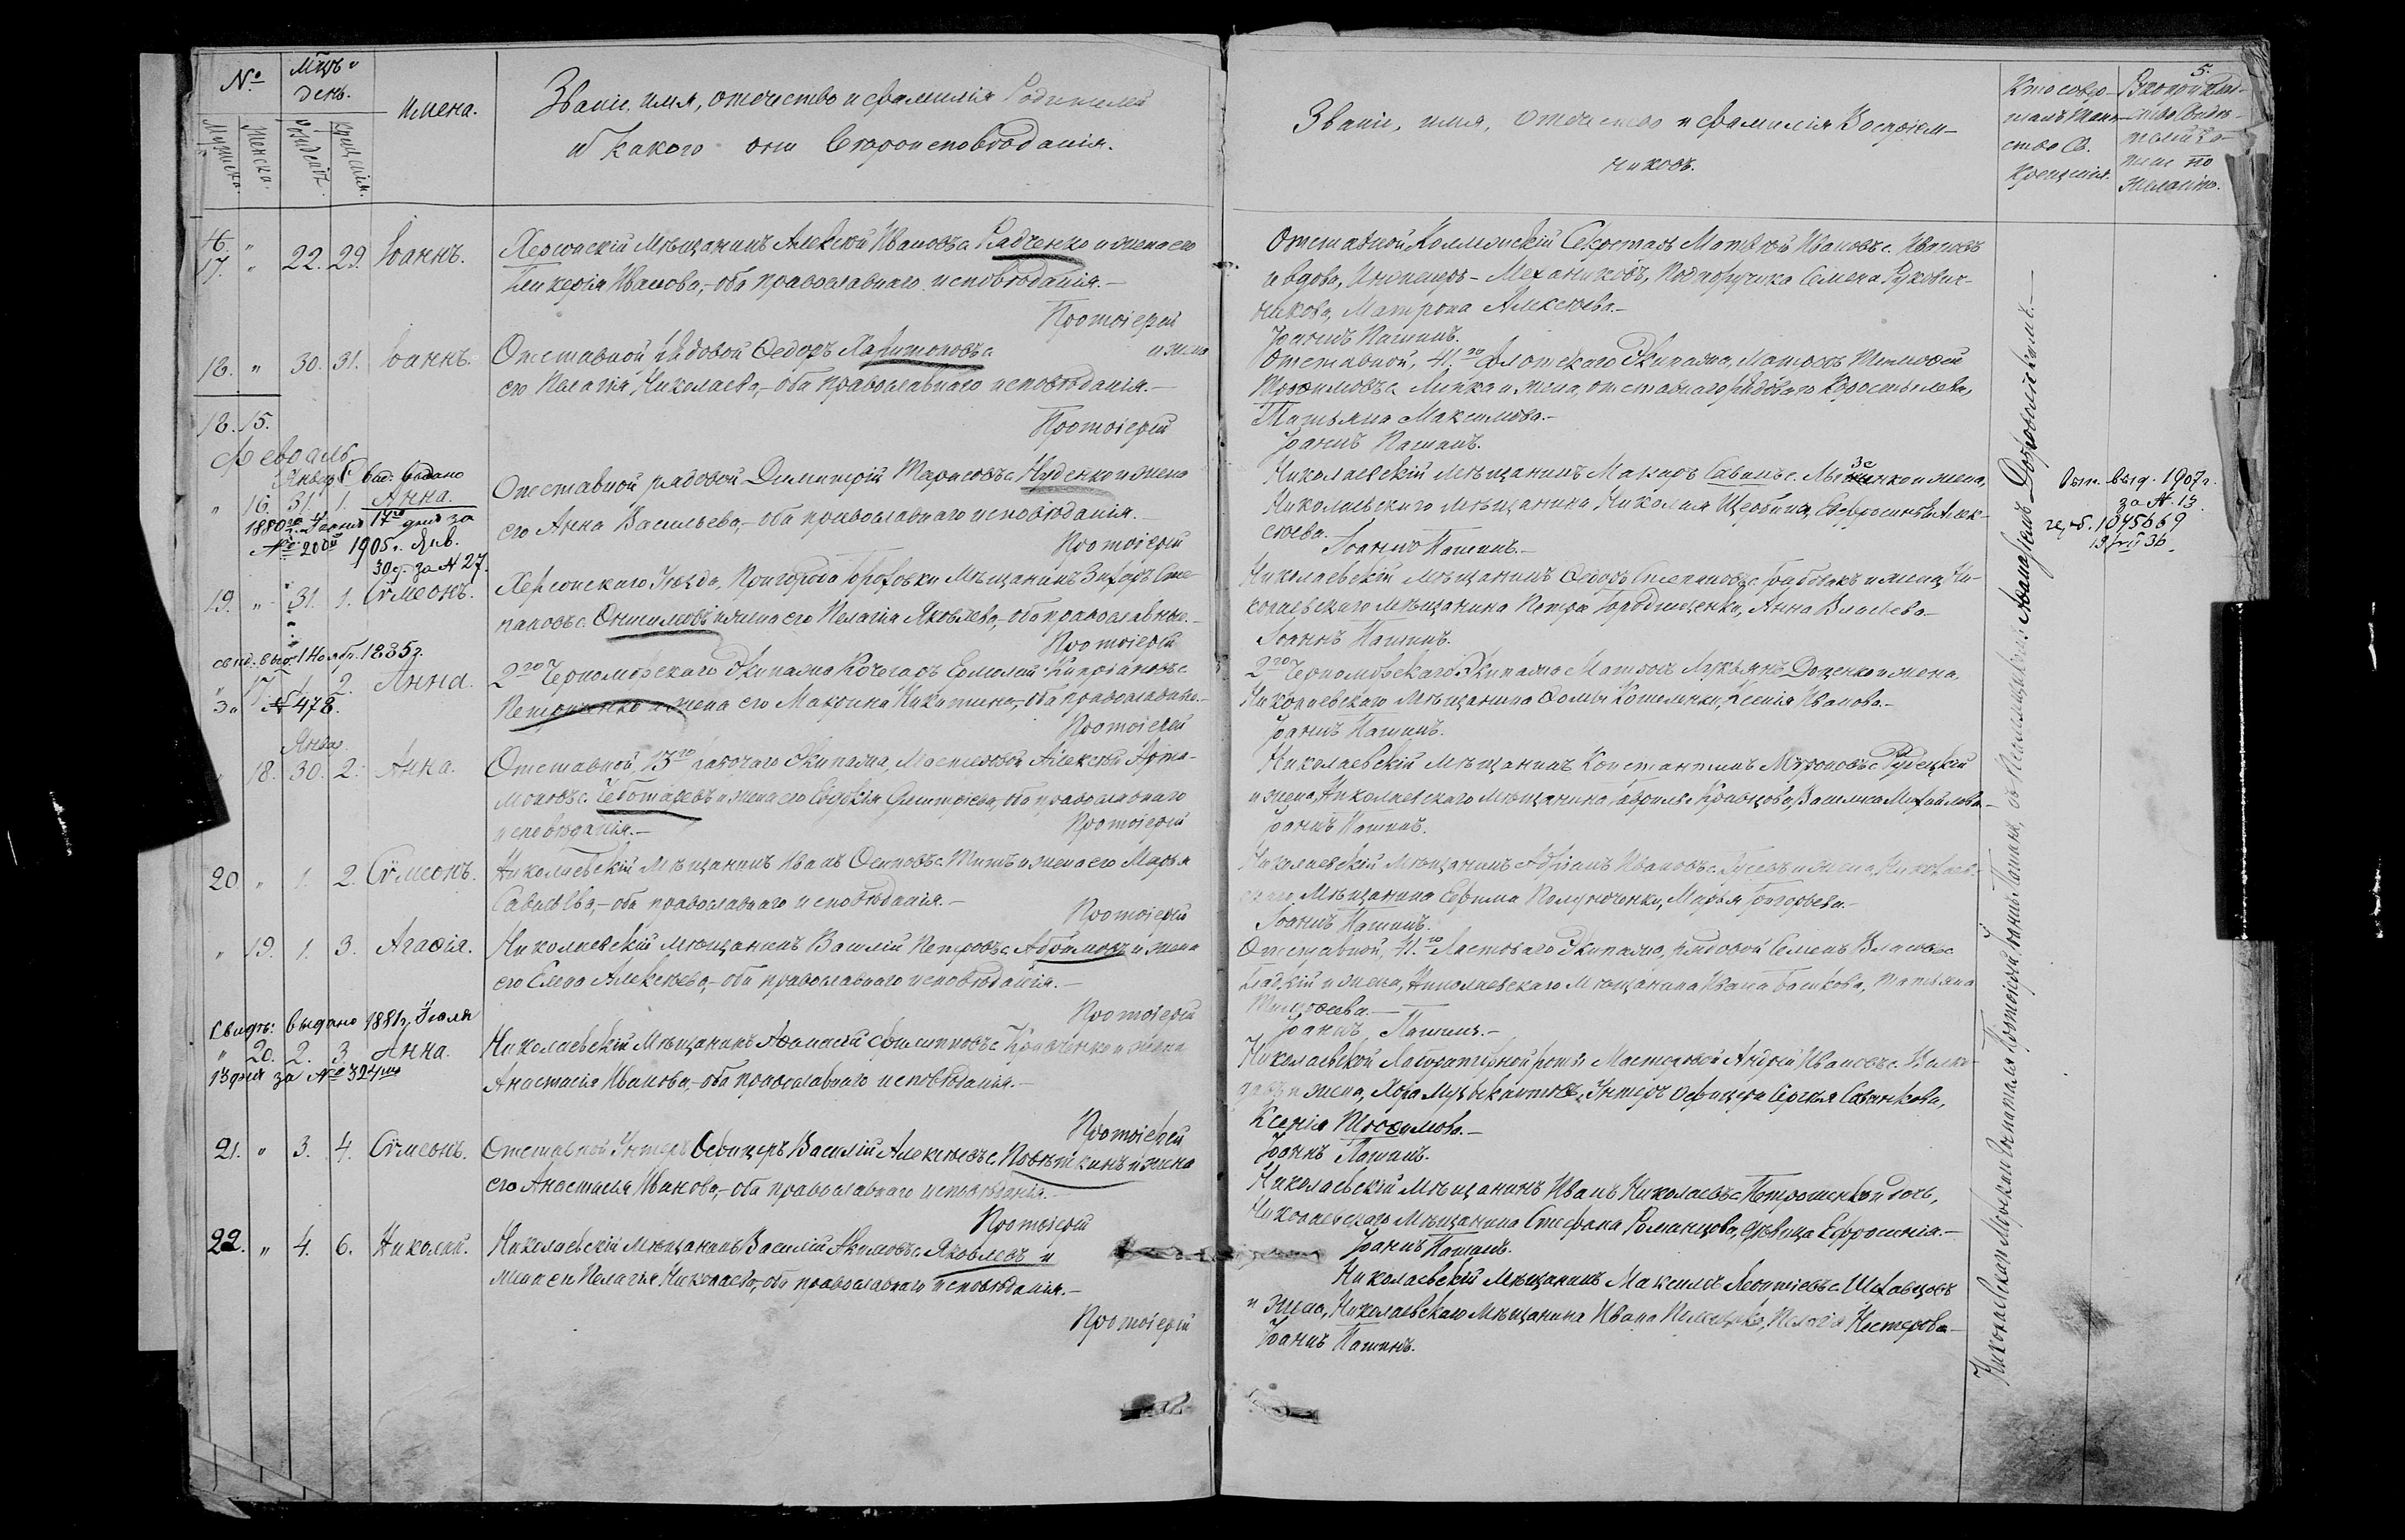 №
Мцъ и
день.
Имена.
Званіе, имя, отчество и фамилія Родителей
и какого они Вѣроисповѣданія.
Мужеска.
Женска.
Рожденія.
Крещенія.
17. " 22. 29. Іоаннъ.
Херсонскій Мѣщанинъ Алексѣй Ивановъ с. Радченко и жена его
Гликерія Иванова,- оба православнаго исповѣданія.-
Протоіерей
18. " 30. 31. Іоаннъ.
Отставной рядовой Федоръ Харитоновъ с. и жена
его Пелагія Николаева,- оба православнаго исповѣданія.-
Протоіерей
18. 15.
Февраль
Январ. выдано
" 16. 31. 1. Анна.
1880го г. Іюня 17го дня за
№ 200й 1905 г. Янв.
30 д. за № 27.
Отставной рядовой Димитрій Тарасовъ с. Нуденко и жена
его Анна Васильева,- оба православнаго исповѣданія.
Протоіерей
19. " 31. 1. Сѵмеонъ.
Херсонскаго Уѣзда, Мѣщанинъ Сте-
пановъ с. Онисимовъ и жена его Пелагія Яковлева,- оба православные.-
Протоіерей
свид. выд. 1 Нояб. 1885 г.
" 17. 1. 2. Анна.
за № 478.
2го Черноморскаго Экипажа Кочегаръ Ермолай Кипріановъ с.
Петриченко и жена его Марина Никитина,- оба православные.-
Протоіерей
Январ.
18. 30. 2. Анна.
Отставной, 13го рабочаго Экипажа, Мастеровой Алексѣй Арта-
моновъ с. Чеботаревъ и жена его Евдокія Дмитріева, оба православнаго
исповѣданія.-
Протоіерей
20 " 1. 2. Сѵмеонъ.
Николаевскій Мѣщанинъ Иванъ Осиповъ с. Титъ и жена его Марья
Савельева,- оба православнаго исповѣданія.-
Протоіерей
" 19. 1. 3. Агафія.
Николаевскій Мѣщанинъ Василій Петровъ с. и жена
его Елена Алексѣева,- оба православнаго исповѣданія.-
Протоіерей
Свидѣ: выдано 1881 г. Іюля
" 20. 2. 3. Анна.
13 дня за № 324мъ
Николаевскій Мѣщанинъ Афанасій с. Кравченко и жена
Анастасія Иванова,- оба православнаго исповѣданія.-
Протоіерей
21. " 3. 4. Сѵмеонъ.
Отставной Унтеръ Офицеръ Василій Алексѣевъ с. и жена
его Анастасія Иванова,- оба православнаго исповѣданія.-
Протоіерей
22. " 4. 6. Николай.
Николаевскій Мѣщанинъ Василій Акимовъ с. Яковлевъ и
жена его Пелагія Николаева,- оба православнаго исповѣданія.-
Протоіерей
5.
Званіе, имя, отчество и фамилія Воспріем-
никовъ.
Кто совер-
шалъ Таин-
ство Св.
Крещенія.
желанію.
Отставной Коллежскій Секретарь Матвѣй Ивановъ с. Ивановъ
и вдова, Инженеръ-Механиковъ, Подпоручика Семена Рукович-
никова, Матрона Алексѣева.-
Іоаннъ Пашинъ.
Отставной, 41го Флотскаго Экипажа, Матросъ Тимофей
Трофимовъ с. Липка и жена, отставнаго рядоваго Коростылева,
Татьяна Максимова.-
Іоаннъ Пашинъ.
Николаевскій Мѣщанинъ Макаръ Савинъ с. и жена,
Николаевскаго Мѣщанина Николая Щербины, Евфросинья Алек-
сѣева.
Іоаннъ Пашинъ.-
Вып. выд. 1907 г.
за № 13
герб. 1045669
Николаевскій Мѣщанинъ Федоръ Степановъ с. и жена, Ни-
колаевскаго Мѣщанина Петра Городниченко, Анна Власьева.-
Іоаннъ Пашинъ.
2го Черноморскаго Экипажа Матросъ Лукьянъ Доценко и жена,
Николаевскаго Мѣщанина Фомы Кошеленки, Ксенія Иванова.-
Іоаннъ Пашинъ.
Николаевскій Мѣщанинъ Константинъ Мироновъ с. Рудецкій
и жена, Николаевскаго Мѣщанина Гавріила Кравцова, Василиса Михайлова.-
Іоаннъ Пашинъ.
Николаевскій Мѣщанинъ Адріанъ Ивановъ с. Гусевъ и жена, Николаев-
скаго Мѣщанина Ефима Марья Григорьева.-
Іоаннъ Пашинъ.
Отставной, 41го Ластоваго Экипажа, рядовой Семенъ Власовъ с.
Гладкій и жена, Николаевскаго Мѣщанина Ивана Татьяна
Тимофеева.-
Іоаннъ Пашинъ.-
Николаевской Лабораторной роты Мастеровой Андрей Ивановъ с. Волко-
давъ и жена, Хора Музыкантовъ, Унтеръ Офицера Сергѣя Савенкова,
Ксенія Трофимова.-
Іоаннъ Пашинъ.
Николаевскій Мѣщанинъ Иванъ Николаевъ с. Петрашенко и дочь,
Николаевскаго Мѣщанина Стефана Романцова, дѣвица Ефросинія.-
Іоаннъ Пашинъ.
Николаевскій Мѣщанинъ Максимъ Леонтіевъ с. Шевцовъ
и жена, Николаевскаго Мѣщанина Ивана Пелагія Нестерова.-
Іоаннъ Пашинъ.
Протоіерей Іоаннъ Пашинъ, съ